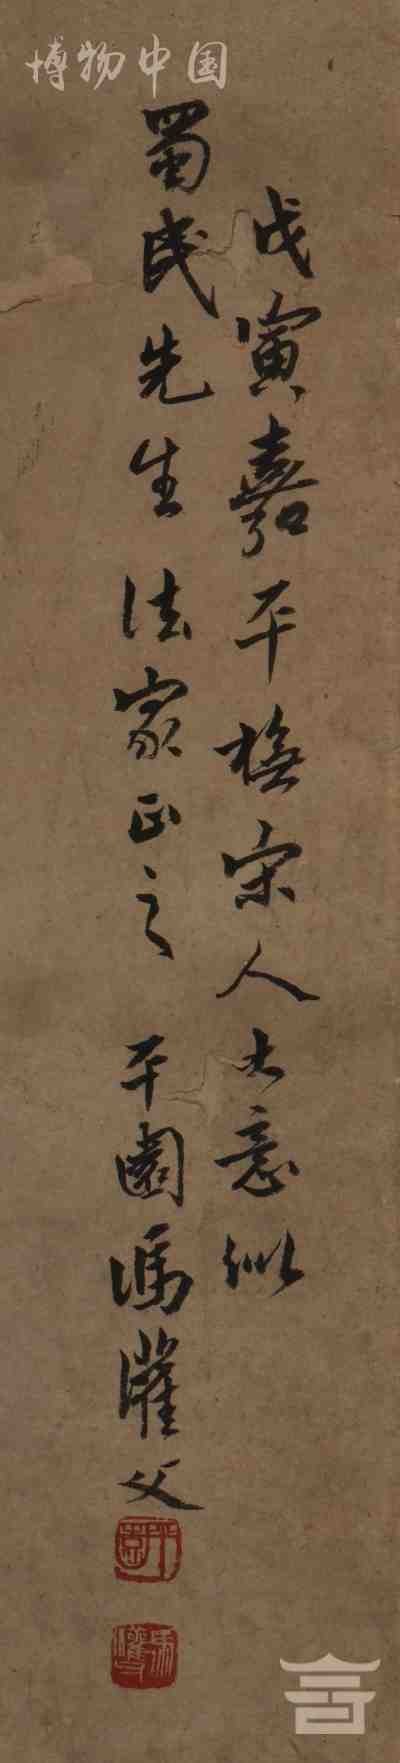 博物中国
戊寅嘉平橅宋人大意似
蜀民先生法家正之 平園馮灌父
平園
馮灌父